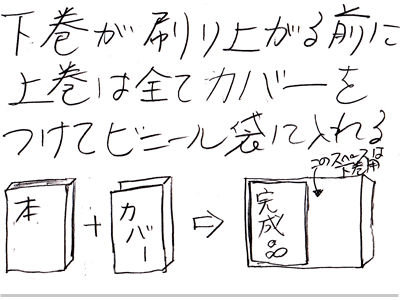 下巻が刷り上がる前に
上巻は全てカバーを
つけてビニール袋に入れる
このスペースは
下巻用
本
+
カバー
⇨
完成品